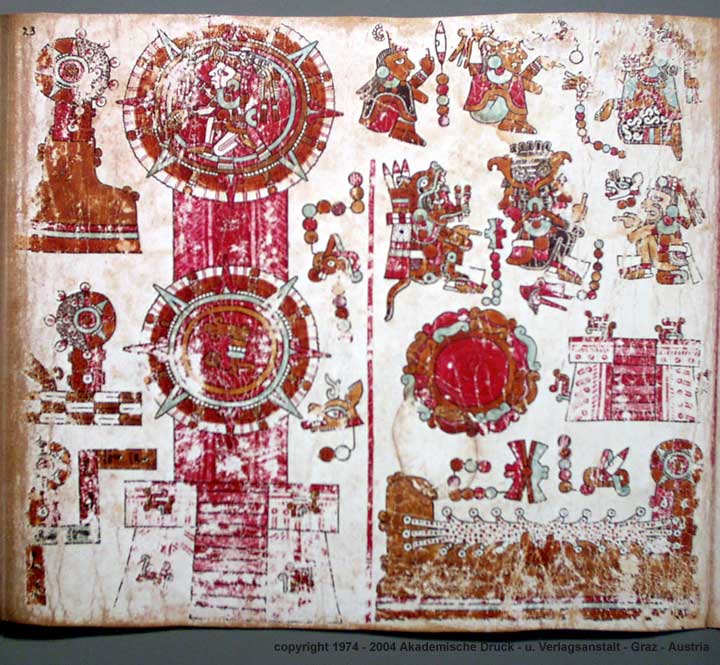 23
copyright 1974 - 2004 Akademische Druck - u. Verlagsanstalt - Graz - Austria